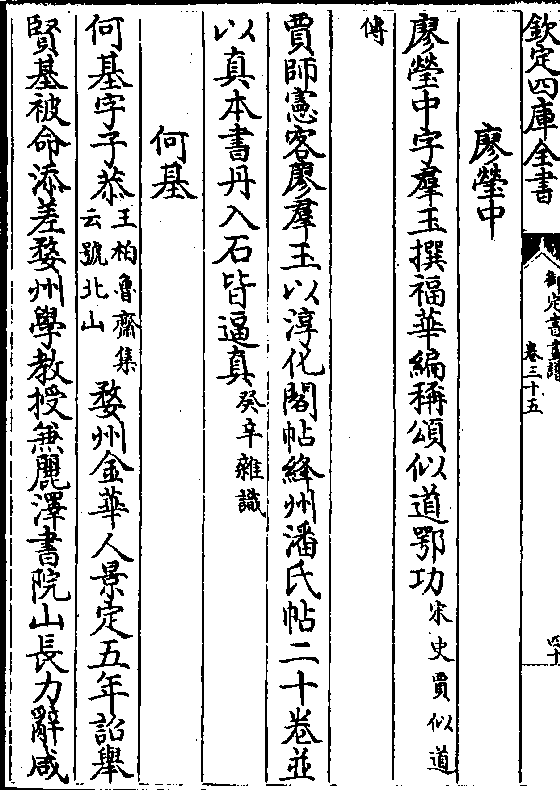 欽定四庫全書
御定書畫譜
卷三十五
四十
廖瑩中
廖瑩中字羣玉撰福華編稱頌似道鄂功宋史賈似道
傳
賈師憲客廖羣玉以淳化閣帖絳州潘氏帖二十卷並
以真本書丹入石皆逼真癸辛雜識
何基
何基字子恭王柏魯齋集云號北山婺州金華人景定五年詔舉
賢基被命添差婺州學教授兼麗澤書院山長力辭咸